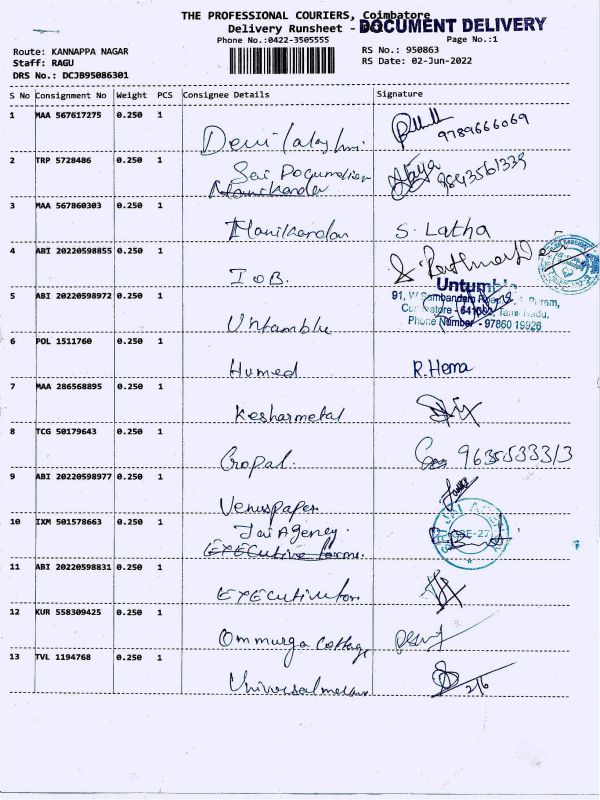 THE PROFESSIONAL COURIERS, Coimbatore
Delivery Runsheet -
DOCUMENT DELIVERY
Phone No.:0422-3505555
Page No.:1
Route: KANNAPPA NAGAR
Staff: RAGU
DRS No.: DCJB95086301
RS No.: 950863
RS Date: 02-Jun-2022
S No Consignment No Weight PCS Consignee Details Signature
1 MAA 567617275 0.250 1
9789666069
2 TRP 5728486 0.250 1 Sai
Manikandan
3 MAA 567860303 0.250 1
Manikandan S. Latha
4 ABI 20220598855 0.250 1
IOB.
5 ABI 20220598972 0.250 1
Untumble
Untumble
91,
Phone Number - 97860 19926
6 POL 1511760 0.250 1
Humed R.Hema
7 MAA 286568895 0.250 1
Kesharmetal
8 TCG 50179643 0.250 1
Gopal
9 ABI 20220598977 0.250 1
Venuspaper
10 IXM 501578663 0.250 1 Jai Agency.
11 ABI 20220598831 0.250 1
12 KUR 558309425 0.250 1
Ommurga Cottage
13 TVL 1194768 0.250 1
2/6